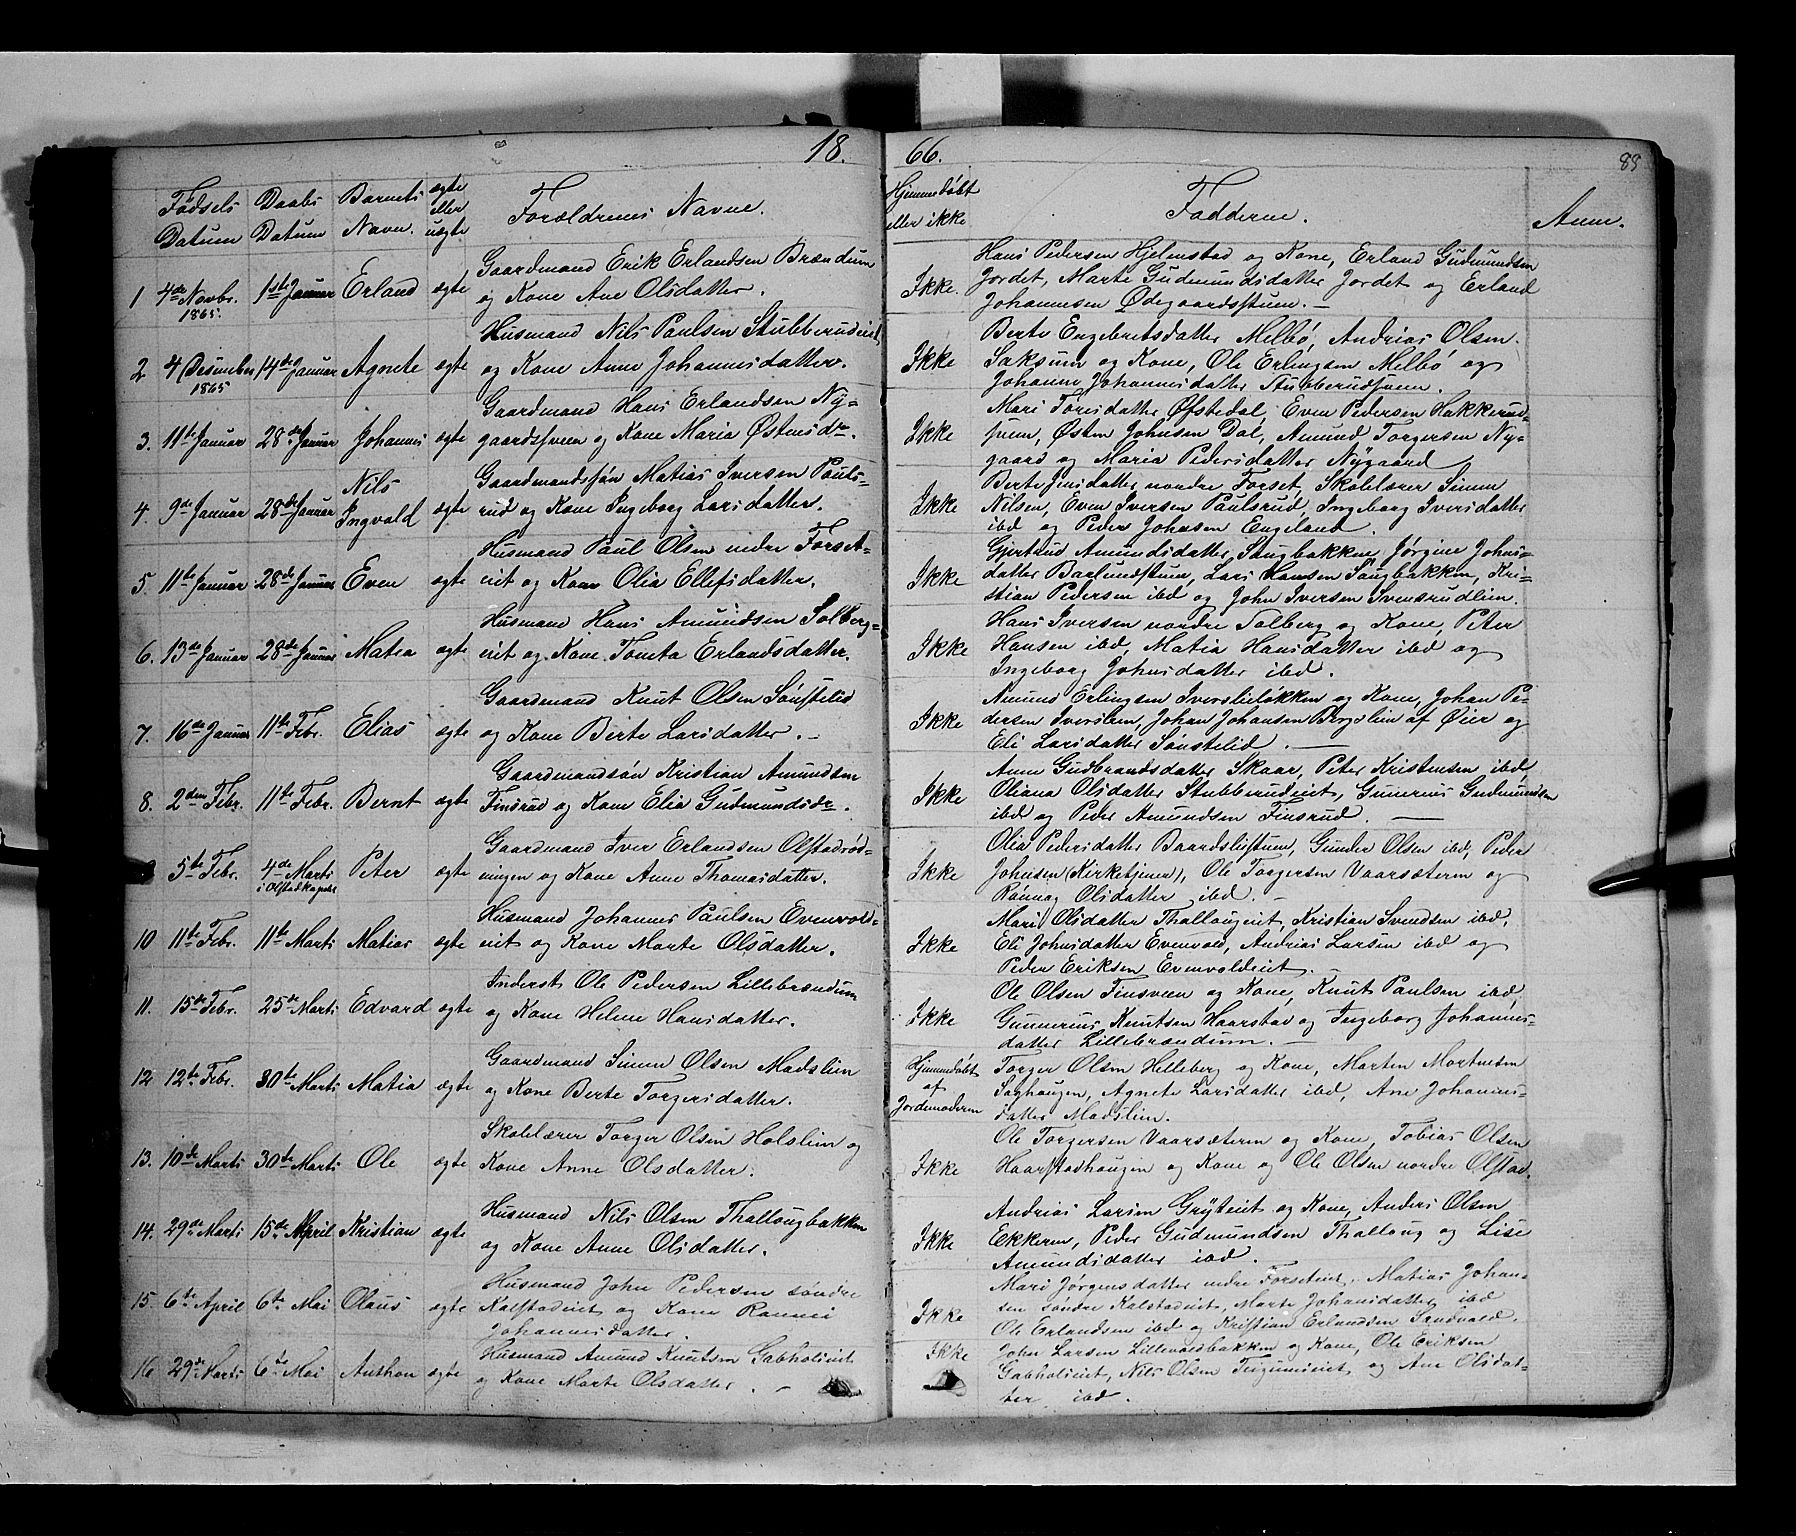 18.
66.
83
Fødsels Datum
Daabs Datum
Barnets Navn.
ægte eller uægte
Forældrenes Navne.
Hjemmedøbt eller ikke
Fadderne.
Anm.
1 4de Novbr. 1865. 1ste Januar Erland ægte
Gaardmand Erik Erlandsen Brændum
og Kone Ane Olsdatter.
Ikke.
Hans Pedersen Hjelmstad og Kone, Erland Gudmundsen
Jordet, Marte Gudmundsdatter Jordet og Erland
Johannesen Ødegaardsstuen. —
2 4 Desember 1865 14de Januar Agnete ægte
Husmand Nils Paulsen Stubberudeiet
og Kone Anne Johannesdatter.
Ikke
Berte Engebretsdatter Melbö, Andrias Olsen
Saksum og Kone, Ole Erlingsen Melbö og
Johanne Johannesdatter Stubberudsveen.
3. 11te Januar 28de Januar Johannes ægte
Gaardmand Hans Erlandsen Ny-
gaardssveen og Kone Maria Østensdr.
Ikke
Mari Toresdatter Øfstedal, Even Pedersen Hakkerud-
sveen, Østen Johnsen Dal, Amund Torgersen Ny-
gaard og Maria Pedersdatter Nygaard
4. 9de Januar 28de Januar Nils Ingvald ægte
Gaardmandssøn Matias Iversen Pauls-
rud og Kone Ingeborg Larsdatter.
Ikke
Berte Jensdatter nordre Forset, Skolelærer Simen
Nilsen, Even Iversen Paulsrud, Ingeborg Iversdatter
ibd og Peder Johnsen Engeland.
5. 11te Januar 28de Januar Even ægte
Husmand Paul Olsen nedre Forset-
eiet og Kone Olia Ellefsdatter.
Ikke
Gjertrud Amundsdatter Saugbakken, Jørgine Johns-
datter Baelundstuen, Lars Hansen Saugbakken, Kri-
stian Pedersen ibd og John Iversen Svenærudlien.
6. 13de Januar 28de Januar Matea ægte
Husmand Hans Amundsen Solberg-
eiet og Kone Tometa Erlandsdatter.
Ikke
Hans Iversen nordre Solberg og Kone, Peter
Hansen ibd, Matia Hansdatter ibd og
Ingeborg Johnsdatter ibd.
7. 16de Januar 11te Febr. Elias ægte
Gaardmand Knut Olsen Sönstelid
og Kone Berte Larsdatter. —
Ikke
Amund Erlingsen Iverslieløkken og Kone, Johan Pe-
dersen Iverslien, Johan Johansen Bergslien af Øier og
Eli Larsdatter Sønstelid. —
8. 2den Febr. 11te Febr. Bernt ægte
Gaardmandsön Kristian Amundsen
Finsrud og Kone Elia Gudmundsdr.
Ikke
Anne Gudbrandsdatter Skaar, Peter Kristensen ibd,
Oliana Olsdatter Stubberudeiet, Gunerius Gudmundsen
ibd og Peder Amundsen Finsrud. —
5te Febr. 4de Marts i Olstad Kapel Peter ægte
Gaardmand Iver Erlandsen Olstadrød-
ningen og Kone Anne Thomasdatter.
Ikke
Olia Pedersdatter Baardslistuen, Gunder Olsen ibd, Peder
Johnsen (Kirketjener), Ole Torgersen Vaarsæteren og
Rönnog Olsdatter ibd. —
10 11te Febr. 11te Marts Matias ægte
Husmand Johannes Paulsen Evenvold-
eiet og Kone Marte Olsdatter.
Ikke
Mari Olsdatter Thallougeiet, Kristian Svendsen ibd,
Eli Johnsdatter Evenvold, Andrias Larsen ibd og
Peder Eriksen Evenvoldeiet.
11. 15de Febr. 25de Marts Edvard ægte
Inderst Ole Pedersen Lillebrændum
og Kone Helene Hansdatter.
Ikke
Ole Olsen Finsveen og Kone, Knut Paulsen ibd,
Gunnerius Knutsen Haarstad og Ingeborg Johannes-
datter Lillebrændum. —
12 12te Febr. 30te Marts Matia ægte
Gaardmand Simen Olsen Madslien
og Kone Berte Torgersdatter.
Hjemmedøbt af Jordemoderen
Torger Olsen Hilleberg og Kone, Morten Mortensen
Saghaugen, Agnete Larsdatter ibd, Ane Johannes-
datter Madslien.
13. 10de Marts 30te Marts Ole ægte
Skolelærer Torger Olsen Holslien og
Kone Anne Olsdatter.
Ikke
Ole Torgersen Vaarsæteren og Kone, Tobias Olsen
Haarstadhaugen og Kone og Ole Olsen nordre Olstad.
14. 29de Marts 15de April Kristian ægte
Husmand Nils Olsen Thallougbakken
og Kone Anne Olsdatter.
Ikke
Andrias Larsen Grÿteiet og Kone, Anders Olsen
Ekkeren, Peder Gudmundsen Thalloug og Lise
Amundsdatter ibd.
15. 6te April 6te Mai Olaus ægte
Husmand John Pedersen söndre
Kalstadeiet og Kone Rannei
Johannesdatter.
Ikke
Mari Jørgensdatter nedre Forseteiet, Matias Johan-
sen söndre Kalstadeiet, Marte Johansdatter ibd
Ole Erlandsen ibd og Kristian Erlandsen Sandvold.
16 29de Marts 6te Mai Anthon ægte
Husmand Amund Knutsen Gabholieiet
og Kone Marte Olsdatter. —
Ikke
John Larsen Lillevoldbakken og Kone, Ole Eriksen
Gabholieiet, Nils Olsen og Ane Olsdat-
ter ibd.